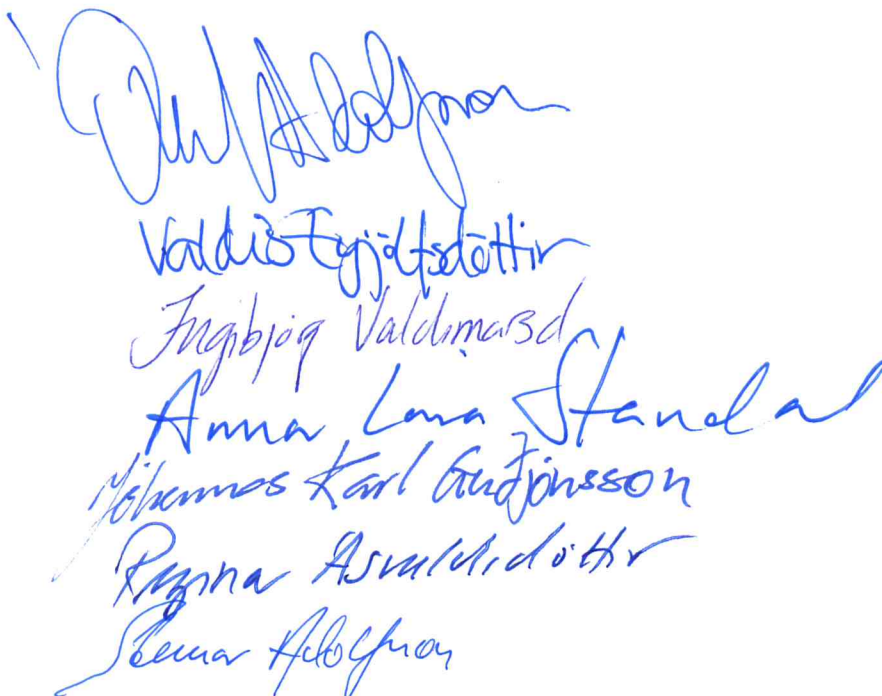 Ólafur Adolfsson
Valdís Eyjólfsdóttir
Ingibjörg Valdimarsd
Anna Lára Steindal
Jóhannes Karl Guðjónsson
Regína Ásvaldsdóttir
Steinar Adolfsson